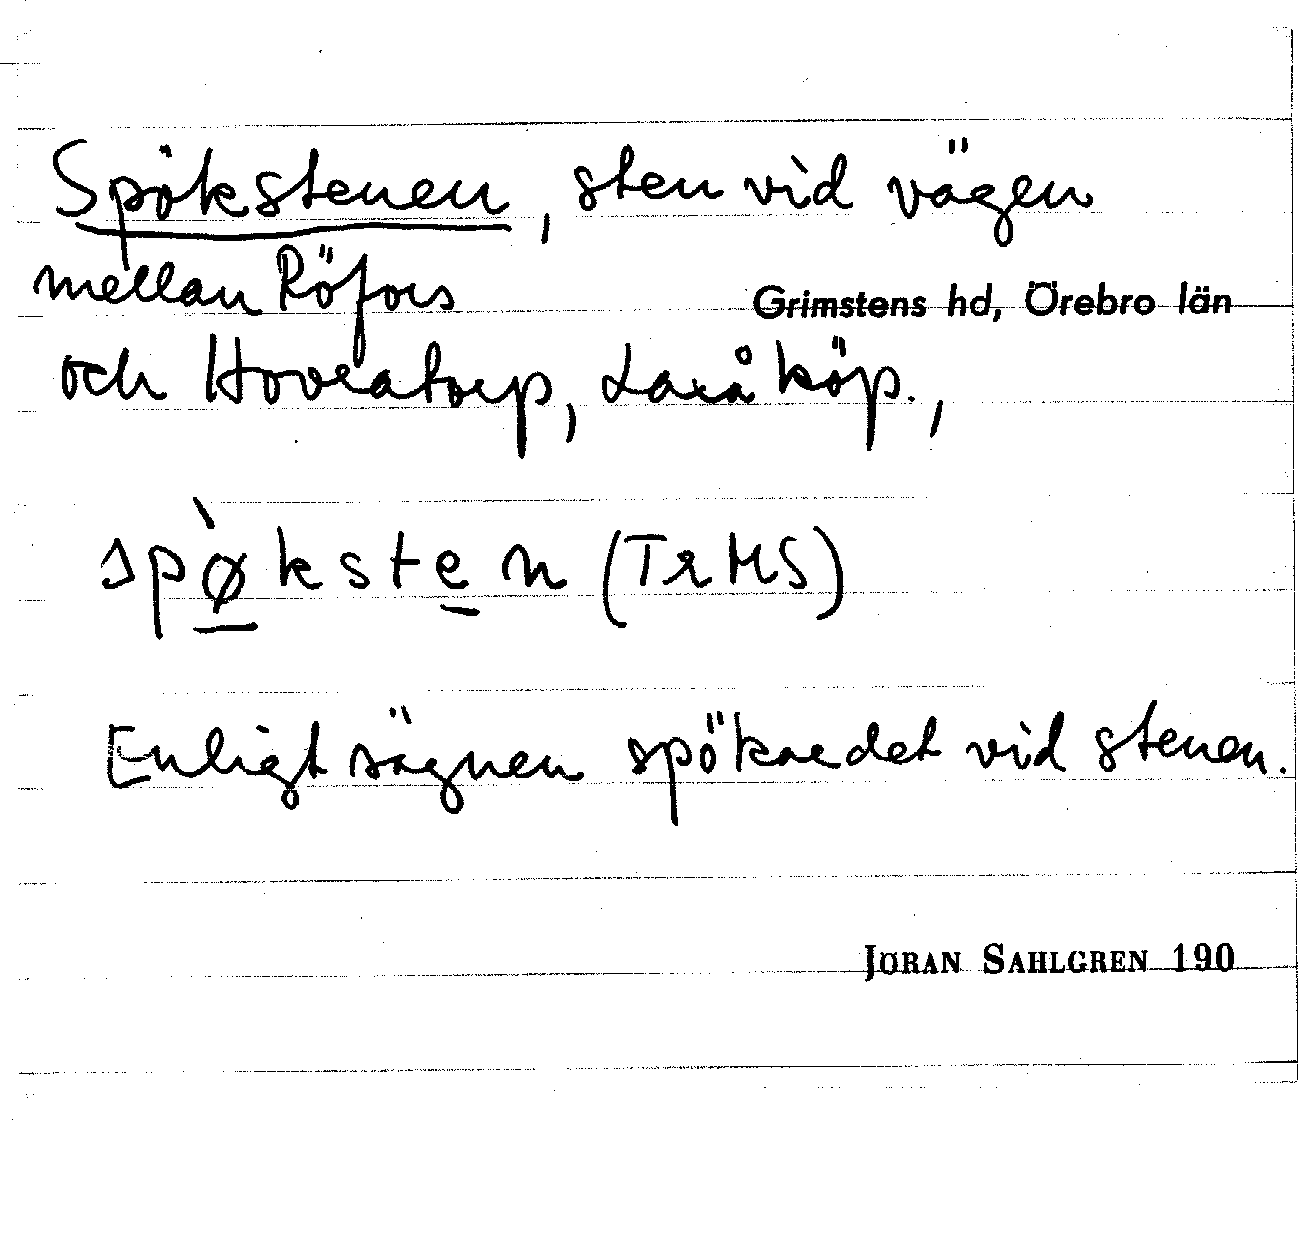 Spökstenen, sten vid vägen
mellan Röfors
Grimstens hd, Örebro län
och Hovratorp, Laxå köp.,
spø̀ksten (TrMS)
Enligt sägnen spökar det vid stenen.
JÖRAN SAHLGREN 190